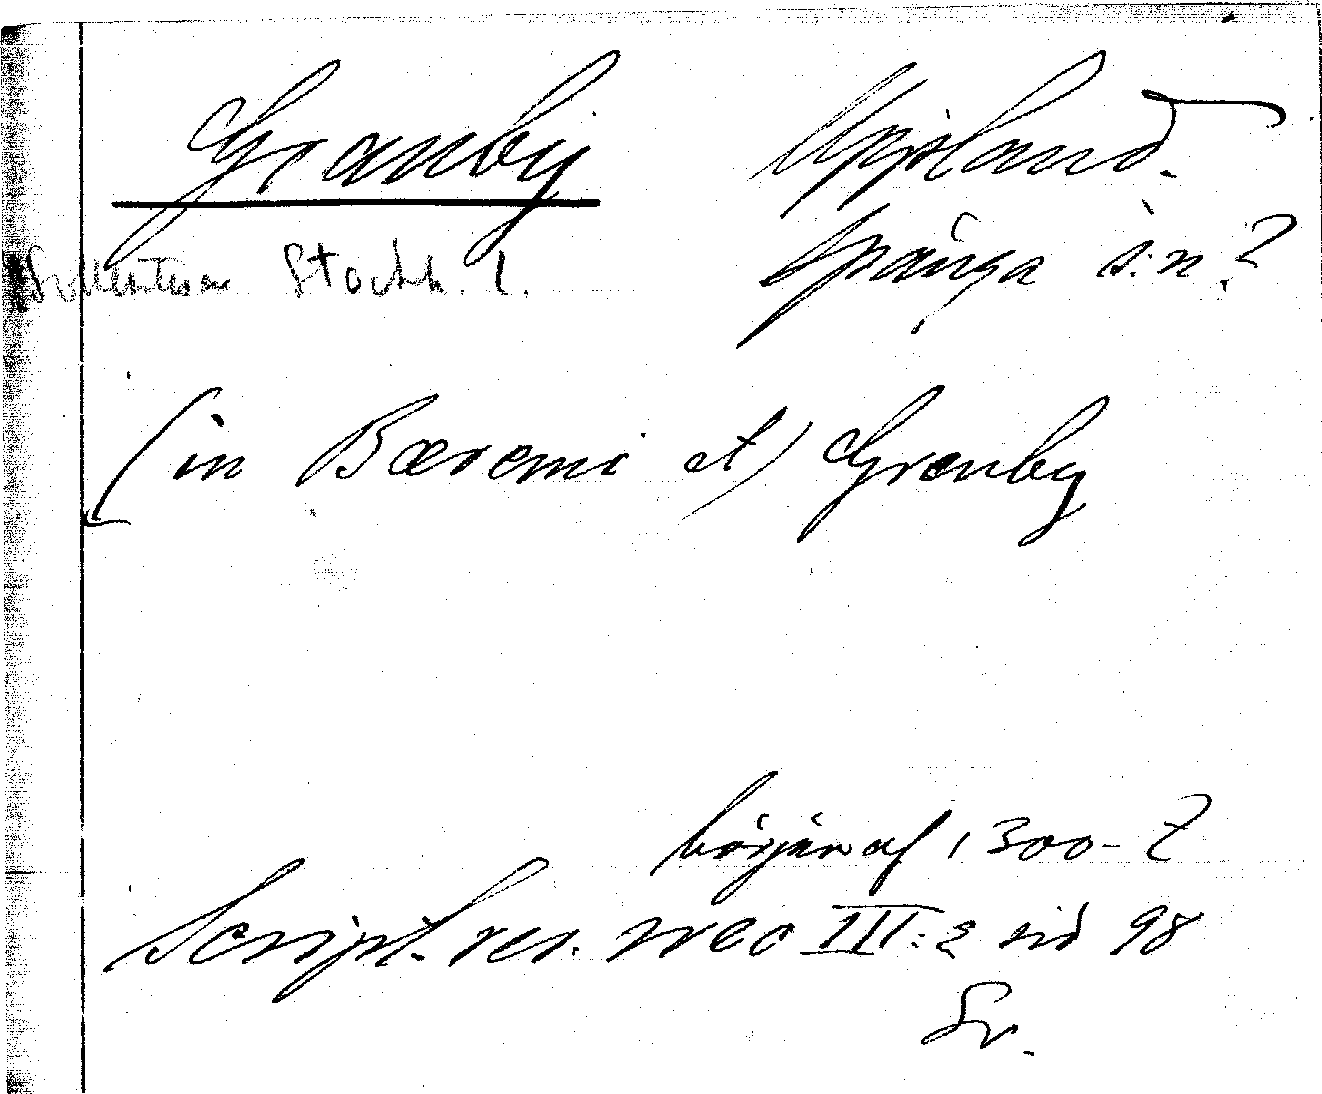 Granby Uppland.
Sollentuna Stockh. l. Spånga s:n?
(in Bæremi et) Granby
början af 1300-t
Script. rer. svec III:2 sid 98
Sv.